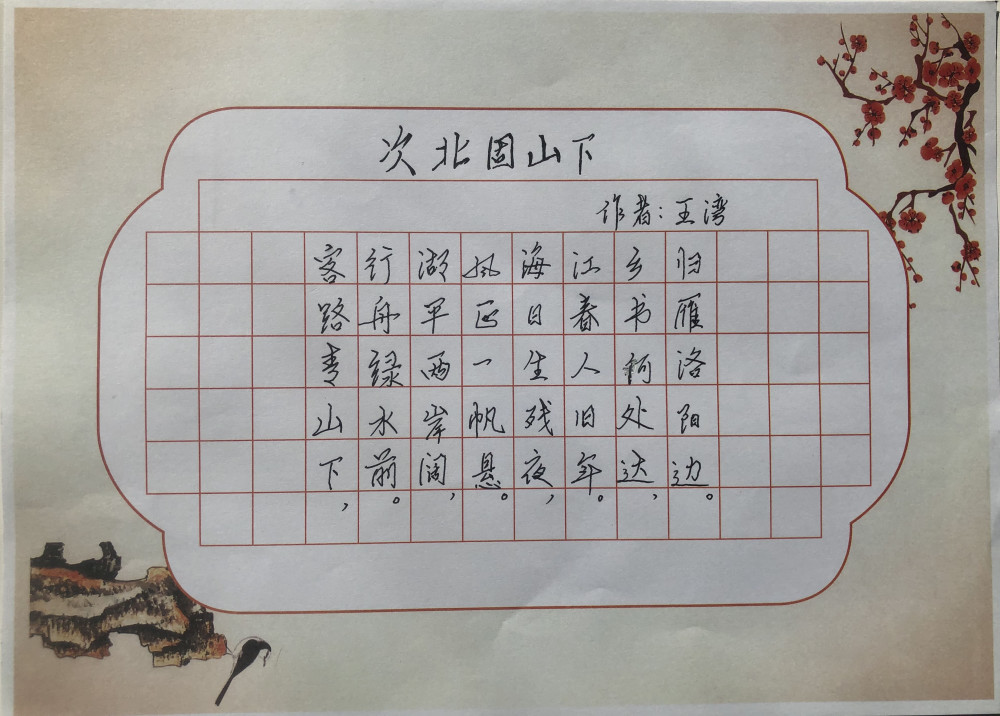 次北固山下
作者：王湾
客路青山下，
行舟绿水前。
湖平两岸阔，
风正一帆悬。
海日生残夜，
江春入旧年。
乡书何处达，
归雁洛阳边。